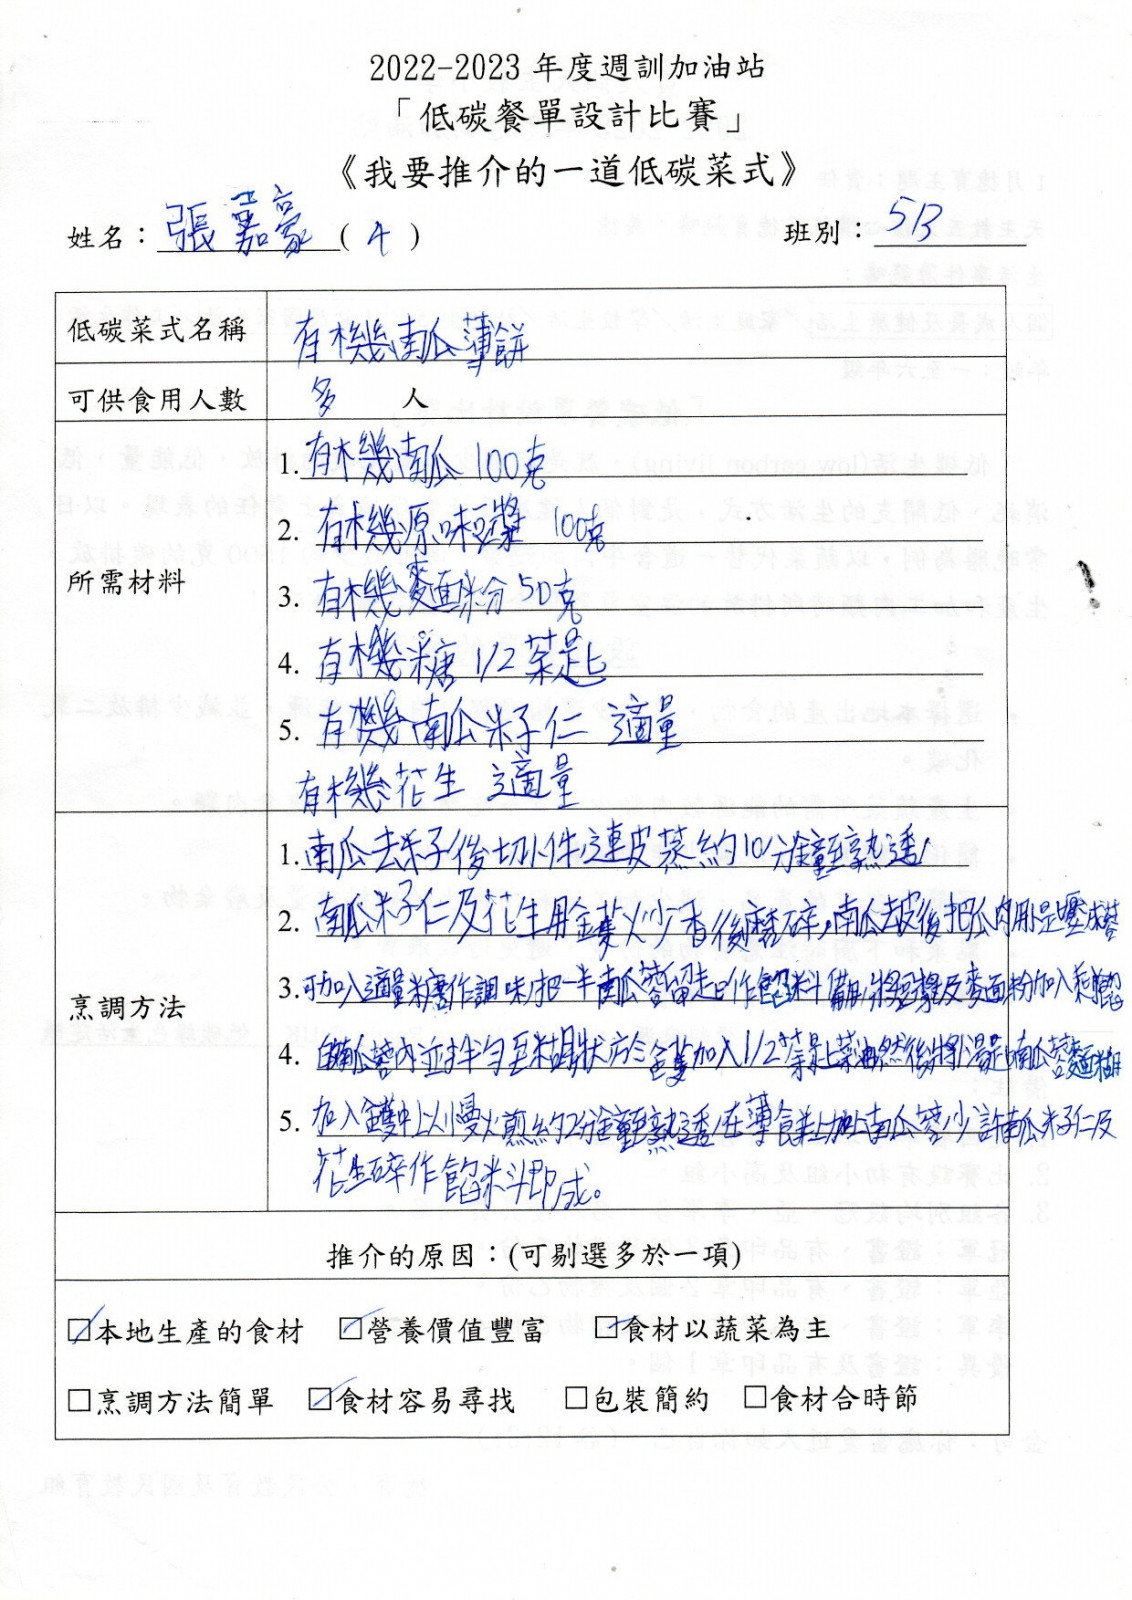 2022-2023 年度週訓加油站
「低碳餐單設計比賽」
《我要推介的一道低碳菜式》
姓名：張嘉豪(4) 班別：5B
低碳菜式名稱 有機南瓜薄餅
可供食用人數 多 人
所需材料
1. 有機南瓜 100克
2. 有機原味豆漿 100克
3. 有機麥面粉 50克
4. 有機糖 1/2 茶匙
5. 有機南瓜籽仁 適量
有機花生 適量
烹調方法
1. 南瓜去籽後切小件,連皮蒸約10分鐘至熟透,
2. 南瓜籽仁及花生用鑊炒香後磨碎,南瓜去皮後把瓜肉用匙壓成蓉
3. 可加入適量糖作調味,把一半南瓜蓉留起作餡料備用,將豆漿及麥面粉加入剩餘
4. 的南瓜蓉內並拌勻至糊狀,於鑊加入1/2茶匙菜油,然後將1湯匙南瓜蓉麵糊
5. 加入鑊中以慢火煎約2分鐘至熟透,在薄餅上加上南瓜蓉,少許南瓜籽仁及
花生碎作餡料即成。
推介的原因：(可剔選多於一項)
☑本地生產的食材 ☑營養價值豐富 ☑食材以蔬菜為主
□烹調方法簡單 ☑食材容易尋找 □包裝簡約 □食材合時節